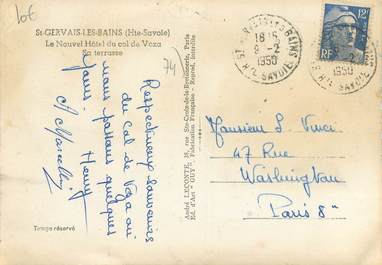 Lot
St-GERVAIS-LES-BAINS (Hte-Savoie)
Le Nouvel Hôtel du col de Voza
Sa terrasse
74
Respectueux souvenirs
du Col de Voza où
nous passons quelques
jours.
Tirage réservé
André LECONTE, 38, rue Ste-Croix-de-la-Bretonnerie, Paris
Ed. d'Art "GUY" Fabrication Française - Reprod. interdite
18 15
9-2
1950
Hte SAVOIE
12F
RF
Monsieur L. Vinci
47 Rue
Washington
Paris 8e